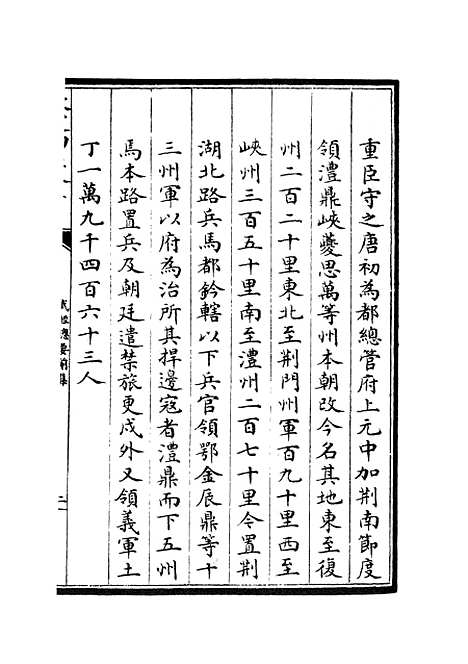 重臣守之唐初為都總管府上元中加荆南節度
領澧鼎峽夔思萬等州本朝改今名其地東至復
州二百二十里東北至荆門州軍百九十里西至
峽州三百五十里南至澧州二百七十里令置荆
湖北路兵馬都鈐轄以下兵官領鄂金辰鼎等十
三州軍以府為治所其捍邊寇者澧鼎而下五州
馬本路置兵及朝廷遣禁旅更戍外又領義軍土
丁一萬九千四百六十三人
武經總要前集